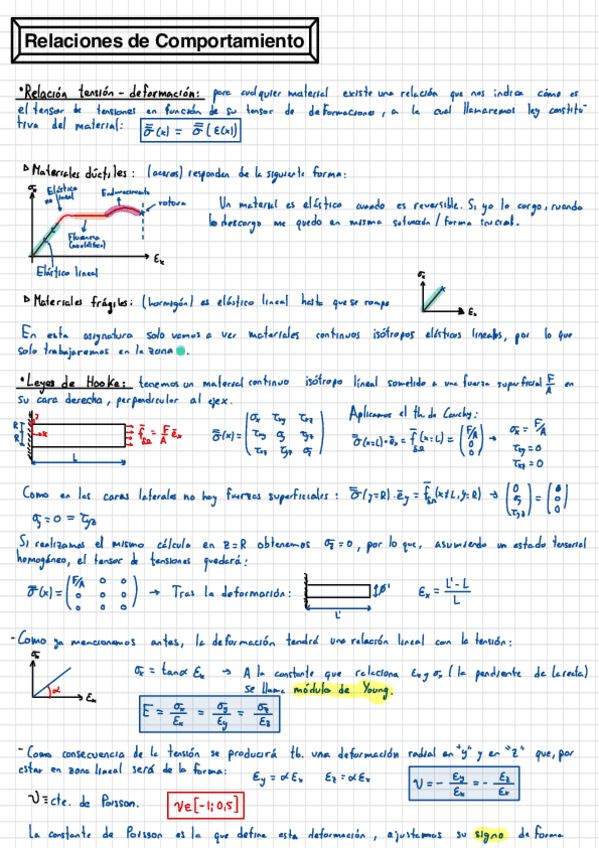 Relaciones de Comportamiento
• Relación tensión - deformación: para cualquier material existe una relación que nos indica cómo es
el tensor de tensiones en función de su tensor de deformaciones, a la cual llamaremos ley constitu-
tiva del material: σ̿(x) = σ̿(ε(x))
▷ Materiales dúctiles: (aceros) responden de la siguiente forma:
σx
Elástico no lineal
Endurecimiento
rotura
Fluencia
Elástico lineal
εx
Un material es elástico cuando es reversible. Si yo lo cargo, cuando
lo descargo me quedo en misma
▷ Materiales frágiles: (hormigón) es elástico lineal hasta que se rompe
σx
εx
En esta asignatura solo vamos a ver materiales continuos isótropos elásticos lineales, por lo que
solo trabajaremos en la zona
• Leyes de Hooke: tenemos un material continuo isótropo lineal sometido a una fuerza superficial F/A en
su cara derecha, perpendicular al eje x.
Aplicamos el th. de Cauchy:
L
σx = F/A
τxy = 0
τxz = 0
Como en las caras laterales no hay fuerzas superficiales:
Si realizamos el mismo cálculo en z=R obtenemos σz = 0, por lo que, asumiendo un estado tensorial
homogéneo, el tensor de tensiones quedará:
→ Tras la deformación:
L'
εx = (L' - L)/L
- Como ya mencionamos antes, la deformación tendrá una relación lineal con la tensión:
σx
α
εx
σx = tanα εx → A la constante que relaciona εx y σx (la pendiente de la recta)
se llama módulo de Young.
E = σx/εx = σy/εy = σz/εz
- Como consecuencia de la tensión se producirá tb. una deformación radial en "y" y en "z" que, por
estar en zona lineal será de la forma: εy = αεx εz = αεx
ν = - εy/εx = - εz/εx
ν ≡ cte. de Poisson. ν∈[-1; 0,5]
La constante de Poisson es la que define esta deformación, ajustamos su signo de forma